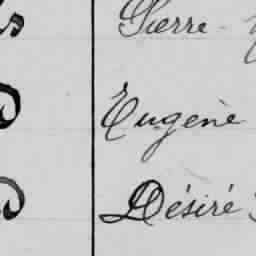 Pierre
Eugène
Désiré